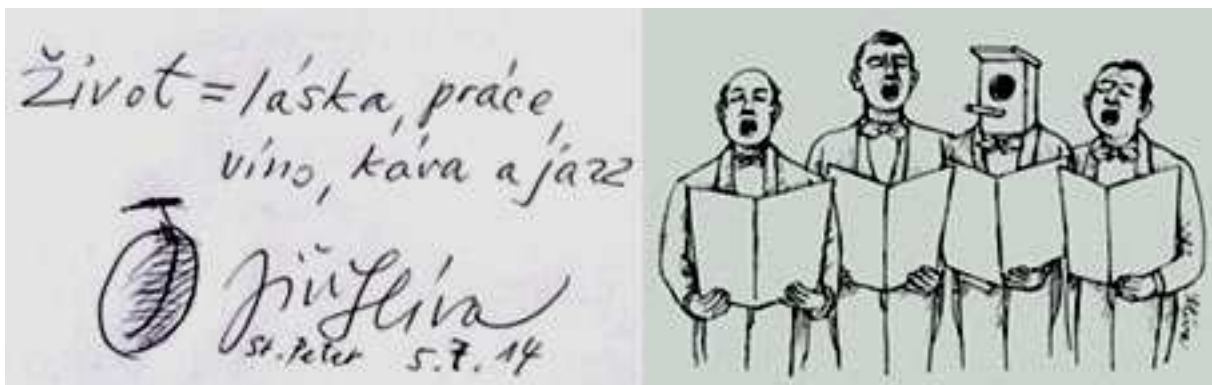 Život = láska, práce,
víno, káva a jazz
Jiří Slíva
St. Peter 5.7.14